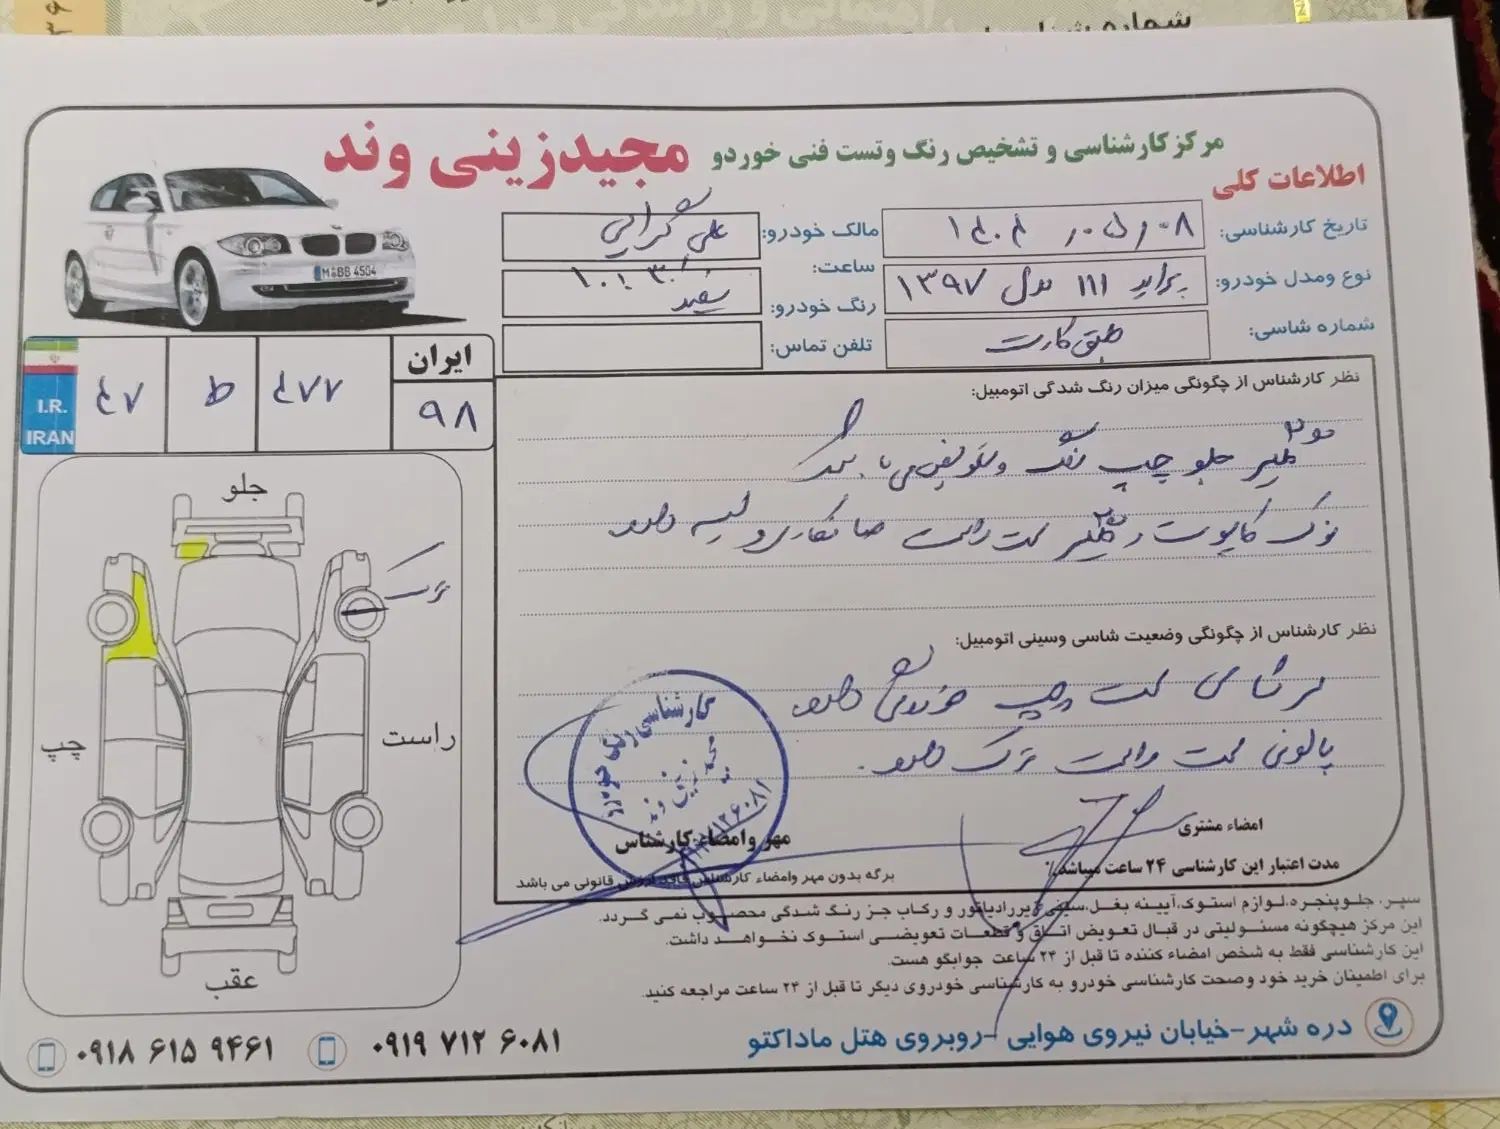 شماره
مرکز کارشناسی و تشخیص رنگ وتست فنی خوردو مجیدزینی وند
اطلاعات کلی
تاریخ کارشناسی: ۱۴۰۴ ر ۰۵ ر ۰۸
مالک خودرو: علی
نوع ومدل خودرو: پراید ۱۱۱ مدل ۱۳۹۷
ساعت: ۱۰:۳۰
رنگ خودرو: سفید
شماره شاسی: طبق کارت
تلفن تماس:
M BB 4504
ایران
۹۸
۴۷ ط ۴۷۷
I.R.
IRAN
نظر کارشناس از چگونگی میزان رنگ شدگی اتومبیل:
گلگیر جلو چپ رنگ و تعویض می باشد
نوک کاپوت و گلگیر سمت راست صافکاری و لیسه دارد
نظر کارشناس از چگونگی وضعیت شاسی وسینی اتومبیل:
سر شاسی سمت چپ خوردگی دارد
پالونی سمت راست ترک دارد.
جلو
ترک
چپ
راست
عقب
کارشناسی رنگ خودرو
زینی وند
امضاء مشتری
مهر وامضاء کارشناس
مدت اعتبار این کارشناسی ۲۴ ساعت میباشد.
برگه بدون مهر وامضاء کارشناس فاقد ارزش قانونی می باشد
سپر، جلوپنجره،لوازم استوک،آیینه بغل،سینی زیررادیاتور و رکاب جز رنگ شدگی محصوب نمی گردد.
این مرکز هیچگونه مسئولیتی در قبال تعویض اتاق و قطعات تعویضی استوک نخواهد داشت.
این کارشناسی فقط به شخص امضاء کننده تا قبل از ۲۴ ساعت جوابگو هست.
برای اطمینان خرید خود وصحت کارشناسی خودرو به کارشناسی خودروی دیگر تا قبل از ۲۴ ساعت مراجعه کنید.
دره شهر-خیابان نیروی هوایی -روبروی هتل ماداکتو
۰۹۱۹ ۷۱۲ ۶۰۸۱
۰۹۱۸ ۶۱۵ ۹۴۶۱